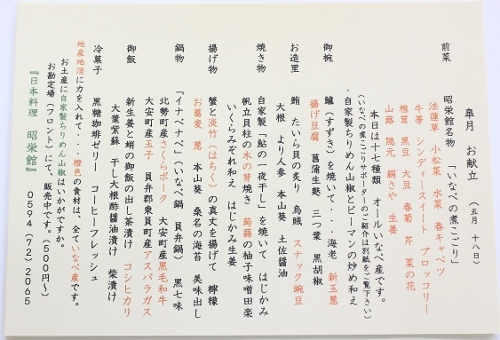 皐月 お献立 (五月 十八日)
前菜 昭栄館名物 「いなべの煮こごり」
法蓮草 小松菜 水菜 春キャベツ
牛蒡 シンディースイート ブロッコリー
椎茸 黒豆 大豆 春菊 芹 菜の花
山藤 隠元 絹さや 生姜
本日は十七種類 オールいなべ産です。
(いなべの煮こごりサポーターのご紹介は別紙をご覧下さい)
・自家製ちりめん山椒とピーマンの炒め和え
御椀 鱸(すずき)を焼いて・・・海老 新玉葱
揚げ豆腐 菖蒲生麩 三つ葉 黒胡椒
お造里 鮪 たいら貝の炙り 烏賊 スナック豌豆
大根 より人参 本山葵 土佐醤油
焼き物 自家製「鮎の一夜干し」を焼いて はじかみ
帆立貝柱の木の芽焼き 蒟蒻の柚子味噌田楽
いくらみぞれ和え はじかみ生姜
揚げ物 蟹と淡竹(はちく)の真丈を揚げて 檸檬
お蕎麦 葱 本山葵 桑名の海苔 美味出し
鍋物 「イナベナベ」(いなべ鍋 貝弁鍋) 黒七味
北勢町産さくらポーク 大安町産黒毛和牛
大安町産玉子 員弁郡東員町産アスパラガス
御飯 新生姜と蛸の御飯の出し茶漬け コシヒカリ
大葉紫蘇 干し大根酢醤油漬け 柴漬け
冷菓子 黒糖珈琲ゼリー コーヒーフレッシュ
地産地消に力を入れて・・・橙色の食材は、全ていなべ産です。
お土産に自家製ちりめん山椒はいかがですか。
お勘定場(フロント)にて、販売中です。(500円〜)
『日本料理 昭栄館』 0594(72)2065